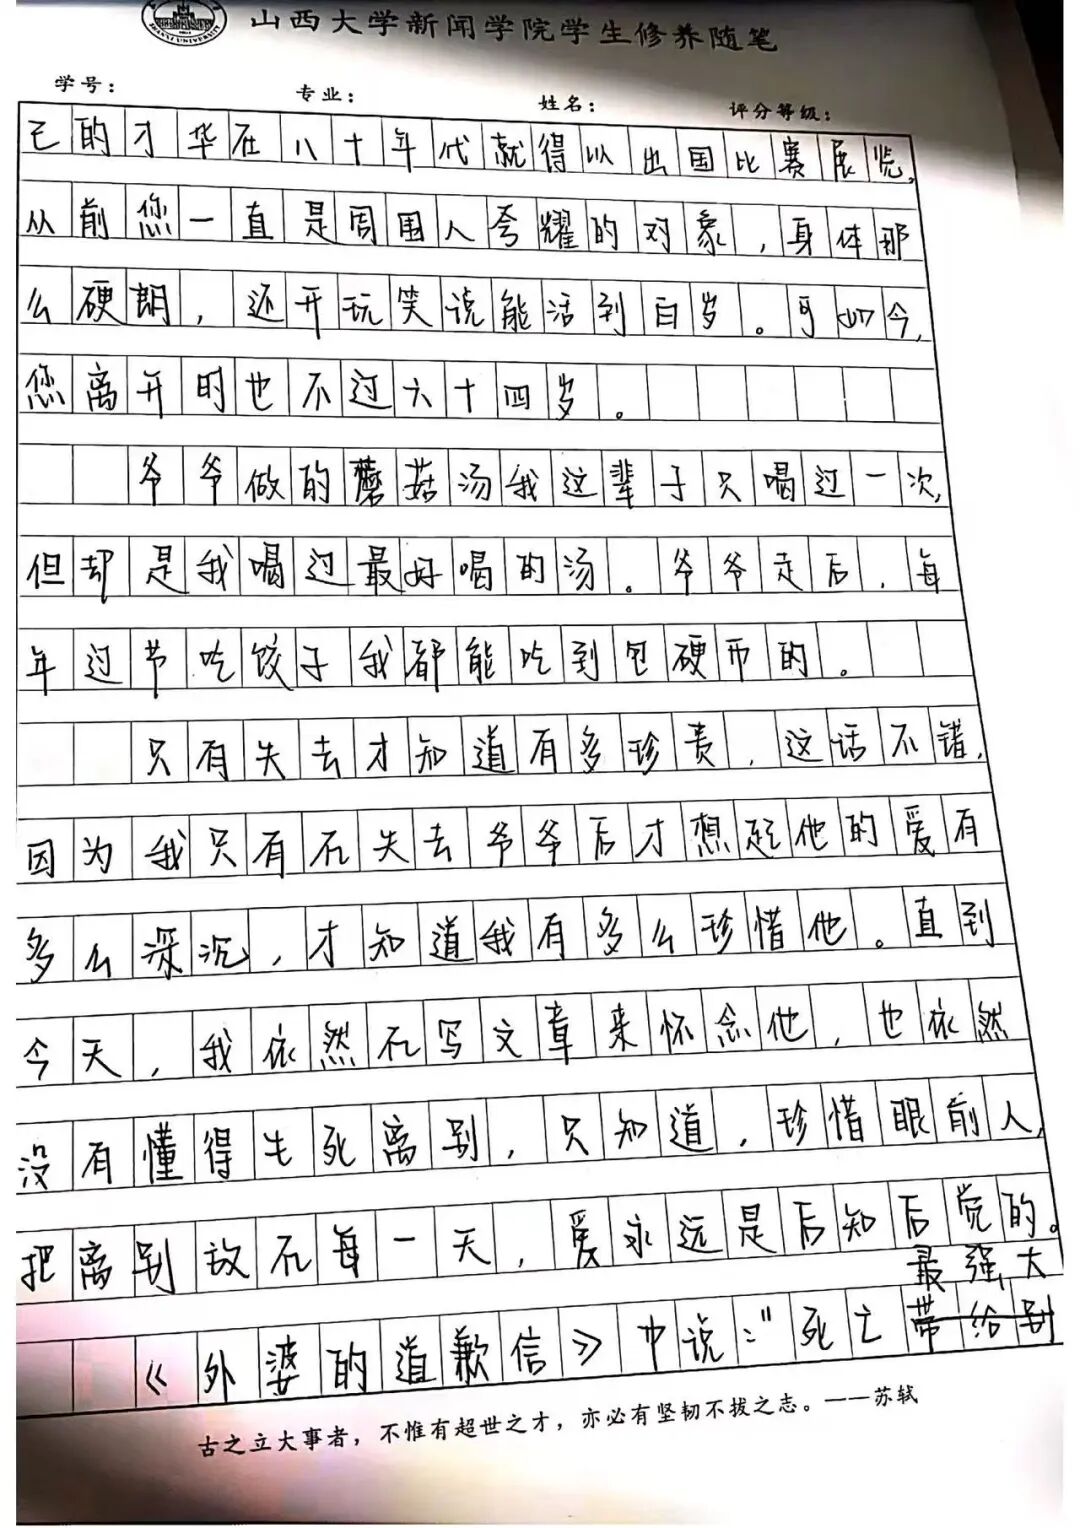 山西大学新闻学院学生修养随笔
学号： 专业： 姓名： 评分等级：
己的才华在八十年代就得以出国比赛展览，
从前您一直是周围人夸耀的对象，身体那
么硬朗，还开玩笑说能活到百岁。可如今，
您离开时也不过六十四岁。
爷爷做的蘑菇汤我这辈子只喝过一次，
但却是我喝过最好喝的汤。爷爷走后，每
年过节吃饺子我都能吃到包硬币的。
只有失去才知道有多珍贵，这话不错，
因为我只有在失去爷爷后才想起他的爱有
多么深沉，才知道我有多么珍惜他。直到
今天，我依然在写文章来怀念他，也依然
没有懂得生死离别，只知道，珍惜眼前人，
把离别放在每一天，爱永远是后知后觉的。
最强大
《外婆的道歉信》中说："死亡带给别
古之立大事者，不惟有超世之才，亦必有坚韧不拔之志。——苏轼